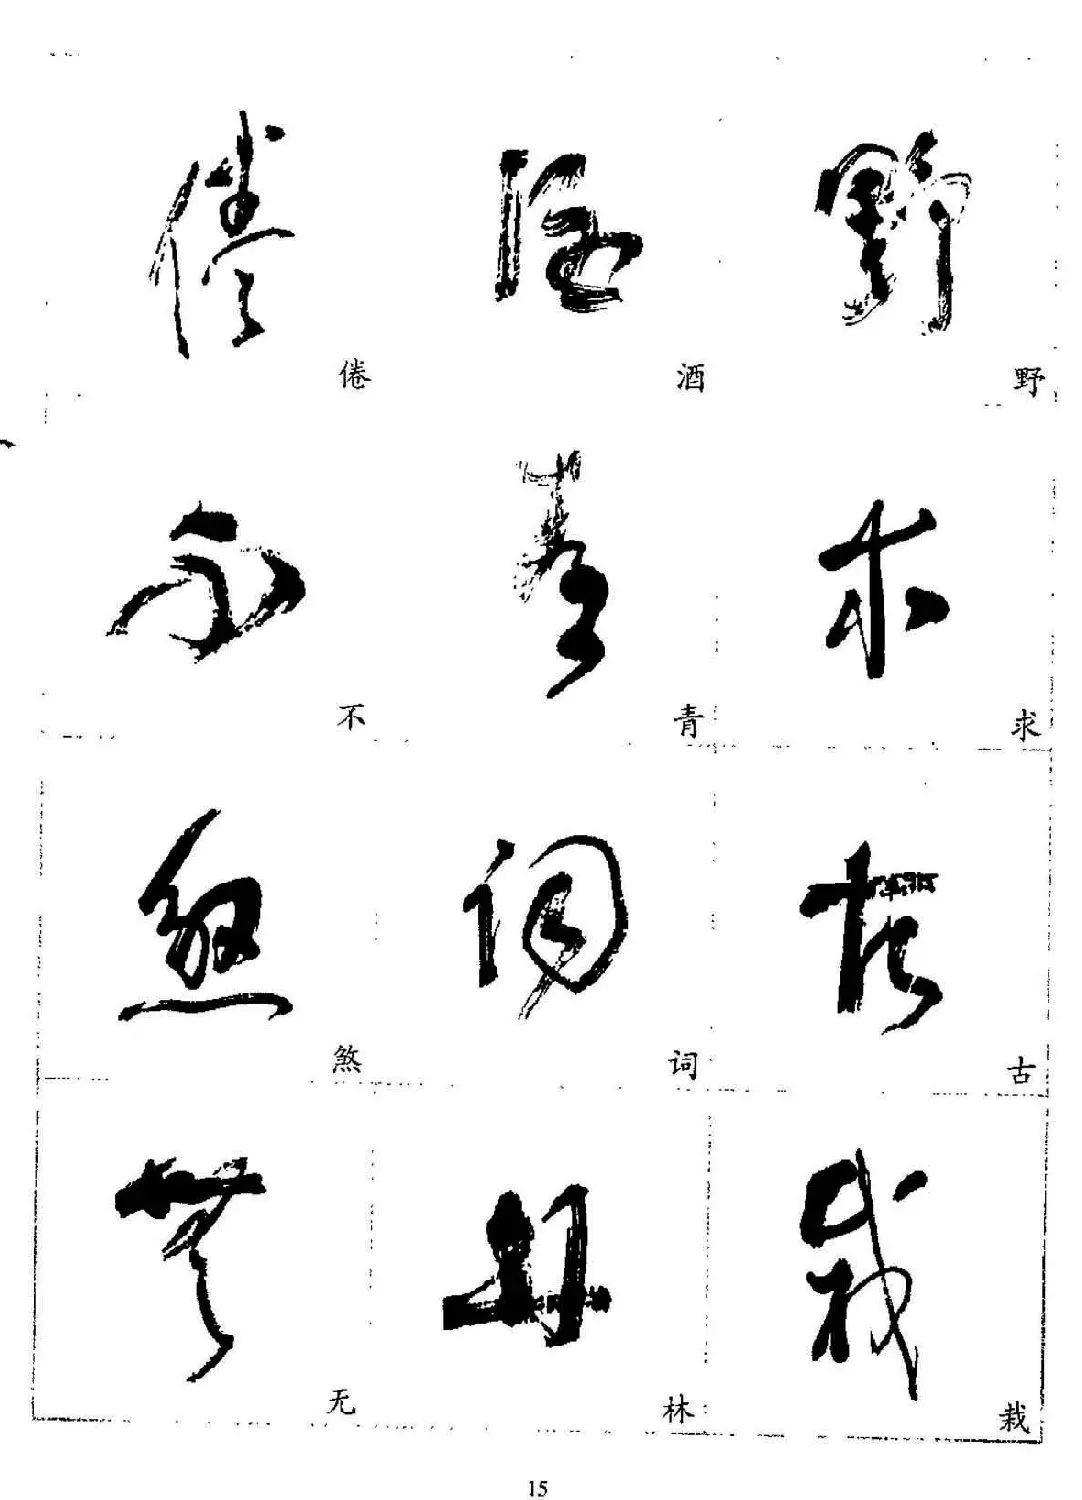 倦 酒 野
不 青 求
煞 词 古
无 林 栽
15